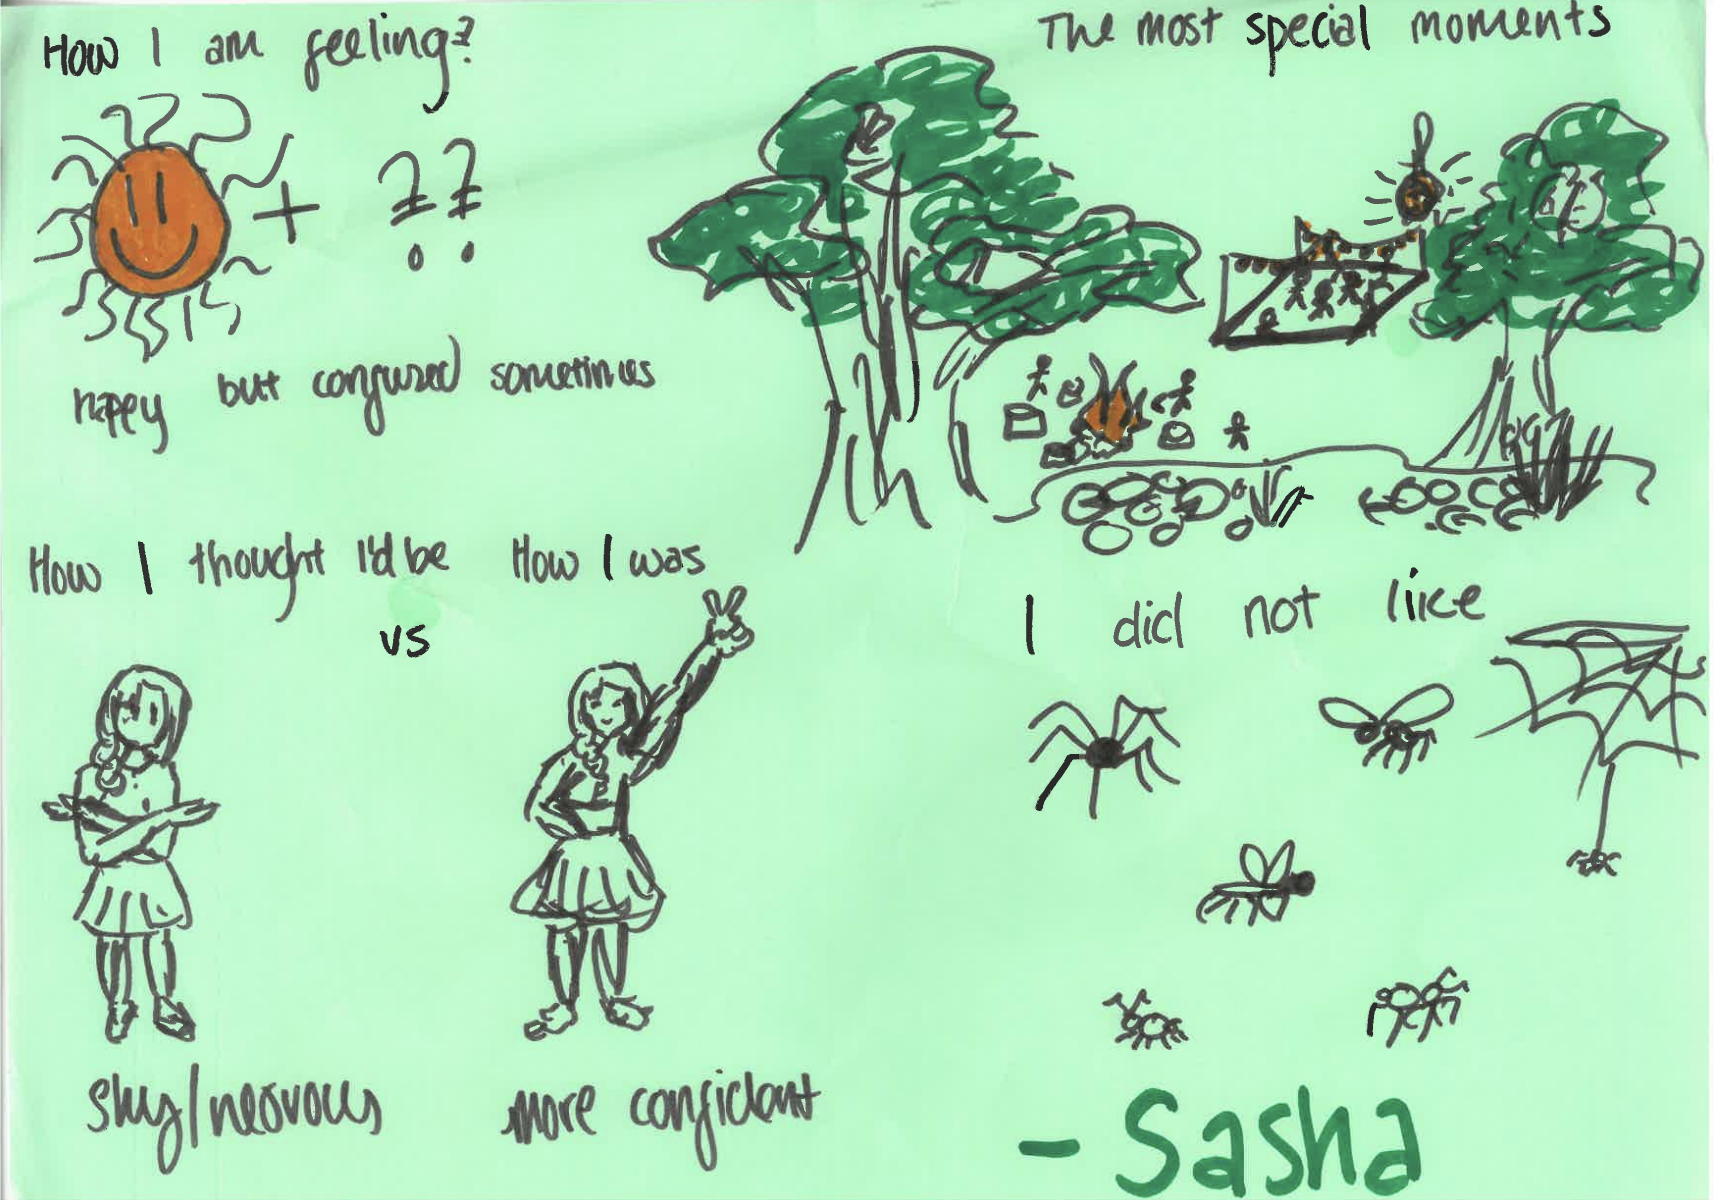 How I am feeling?
+ ??
happy but confused sometimes
The most special moments
How I thought I'd be
vs
How I was
shy/nervous
more confidant
I did not like
- Sasha